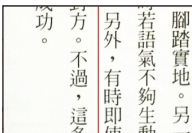 腳踏實地。另
若語氣不夠生動
另外，有時即使
對方。不過，這
成功。